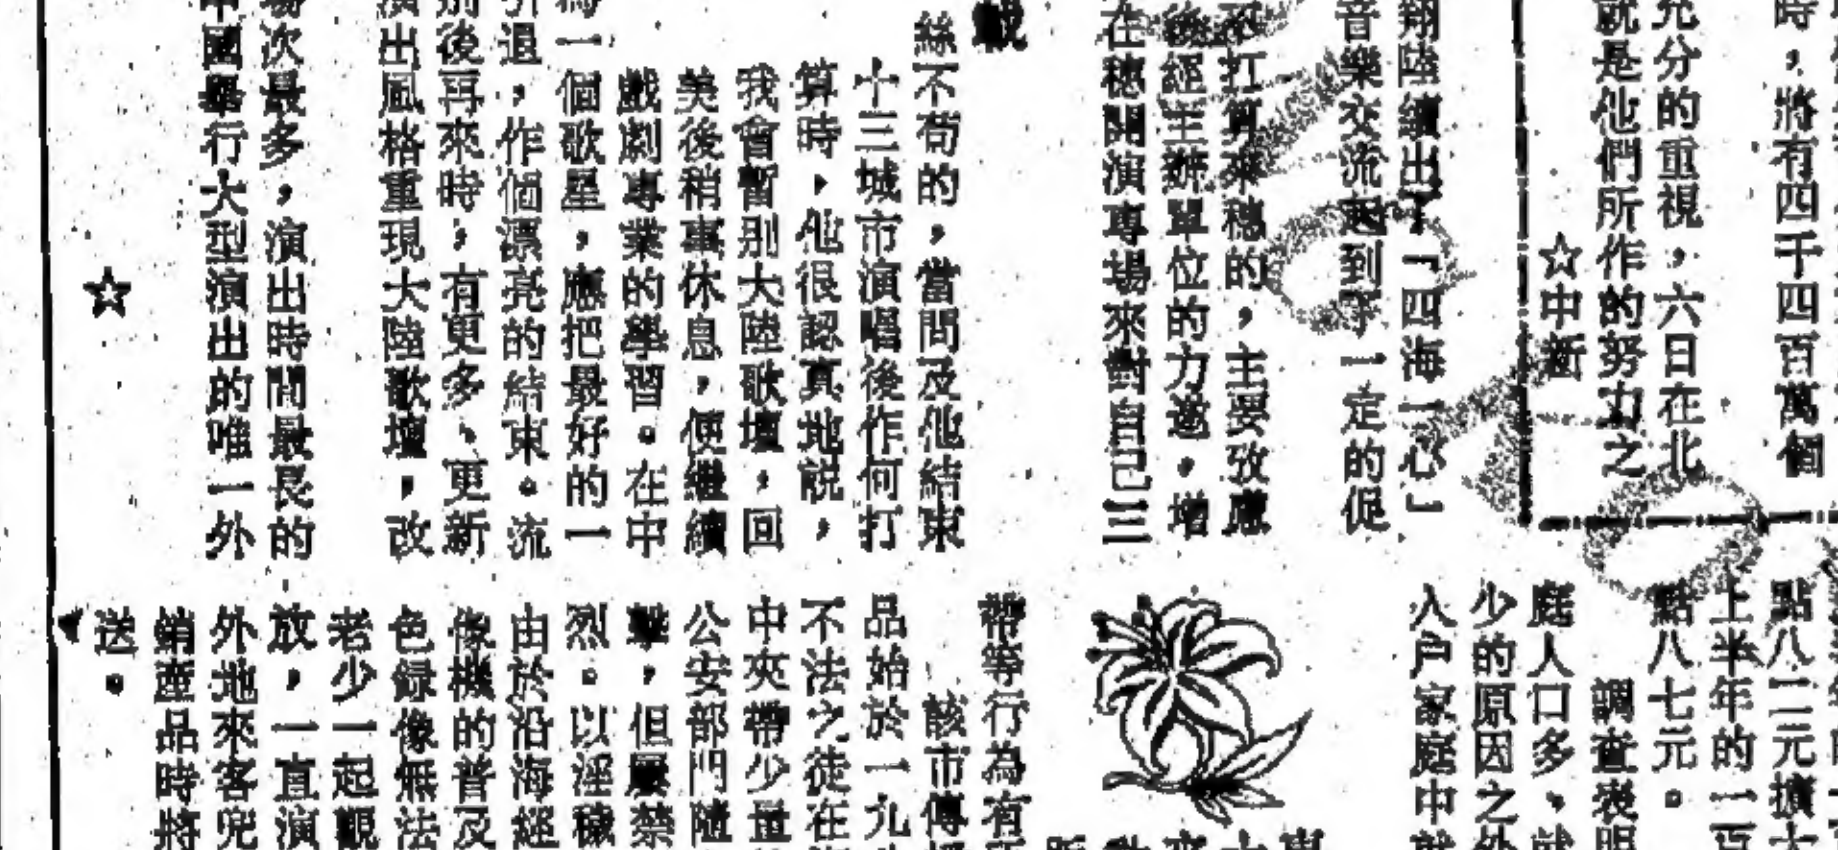 時，將有四千四百萬個
充分的重視，六日在北
就是他們所作的努力之
☆中新
翔陸續出了「四海一心」
音樂交流起到了一定的促
不打算來穗的，主要攷慮
後經主辦單位的力邀，增
在穗開演專場來對自己三
載
絲不苟的，當問及他結束
十三城市演唱後作何打
算時，他很認真地説，
我會暫別大陸歌壇，回
美後稍事休息，便繼續
戲劇專業的學習。在中
為一個歌星，應把最好的一
引退，作個漂亮的結束。流
別後再來時，有更多、更新
演出風格重現大陸歌壇，改
場次最多，演出時間最長的
中國舉行大型演出的唯一外
☆
點八二元擴大
上半年的一百
點八七元。
調查表明
庭人口多，就
少的原因之外
入户家庭中就
帶等行為有
該市傳播
品始於一九
不法之徒在
中夾帶少量
公安部門隨
擊，但屢禁
烈。以淫穢
由於沿海經
像機的普及
色録像無法
老少一起觀
放，一直演
外地來客兜
銷產品時將
送。